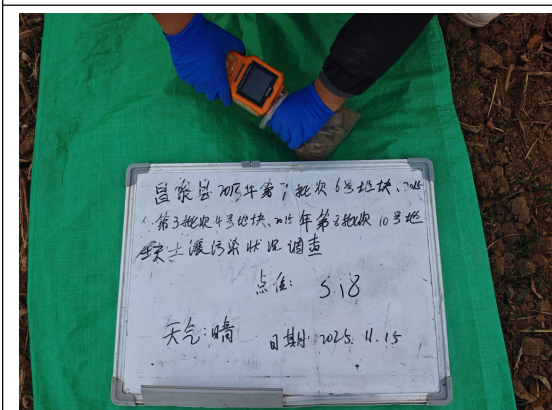 昌乐县2013年第7批次6号地块、2015
年第3批次4号地块、2015年第2批次10号地
块土壤污染状况调查
点位: S18
天气:晴 日期:2025.11.15